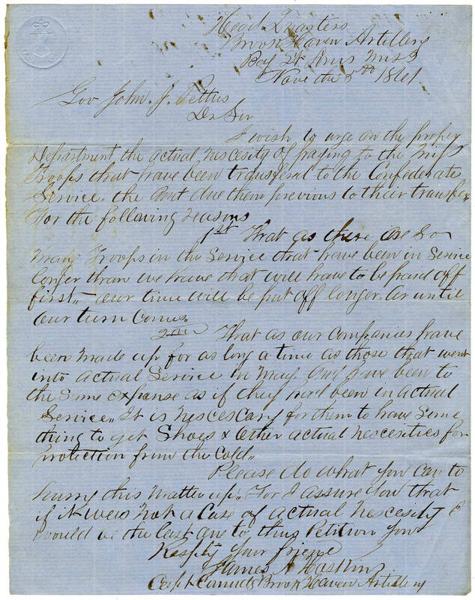 Head Quarters
Brook Haven Artillery
Bay St Louis Miss
Nove the 5th 1861
Gov John J. Pettus
Dr Sir
I wish to urge on the proper
Department the actual nescesity of paying to the Miss
Troops that have been transfered to the Confederate
Service the Amt due them previous to their transfer
for the following reasons
1st That as there are so
many Troops in the Service that have been in Service
longer than we have that will have to be paid off
first. our time will be put off longer or until
our turn comes
2nd That as our companies have
been made up for as long a time as those that went
into actual Service in May and have been to
the same expense as if they had been in actual
Service. It is nescescary for them to have some
thing to get Shoes & other actual nescesities for
protection from the Cold.
Please do what you can to
hurry this matter up. For I assure you that
if it were not a Case of actual nescesity I
would be the last one to thus Petition you
Respty Your friend
James A Hoskins
Capt Comndg Brook Haven Artillery